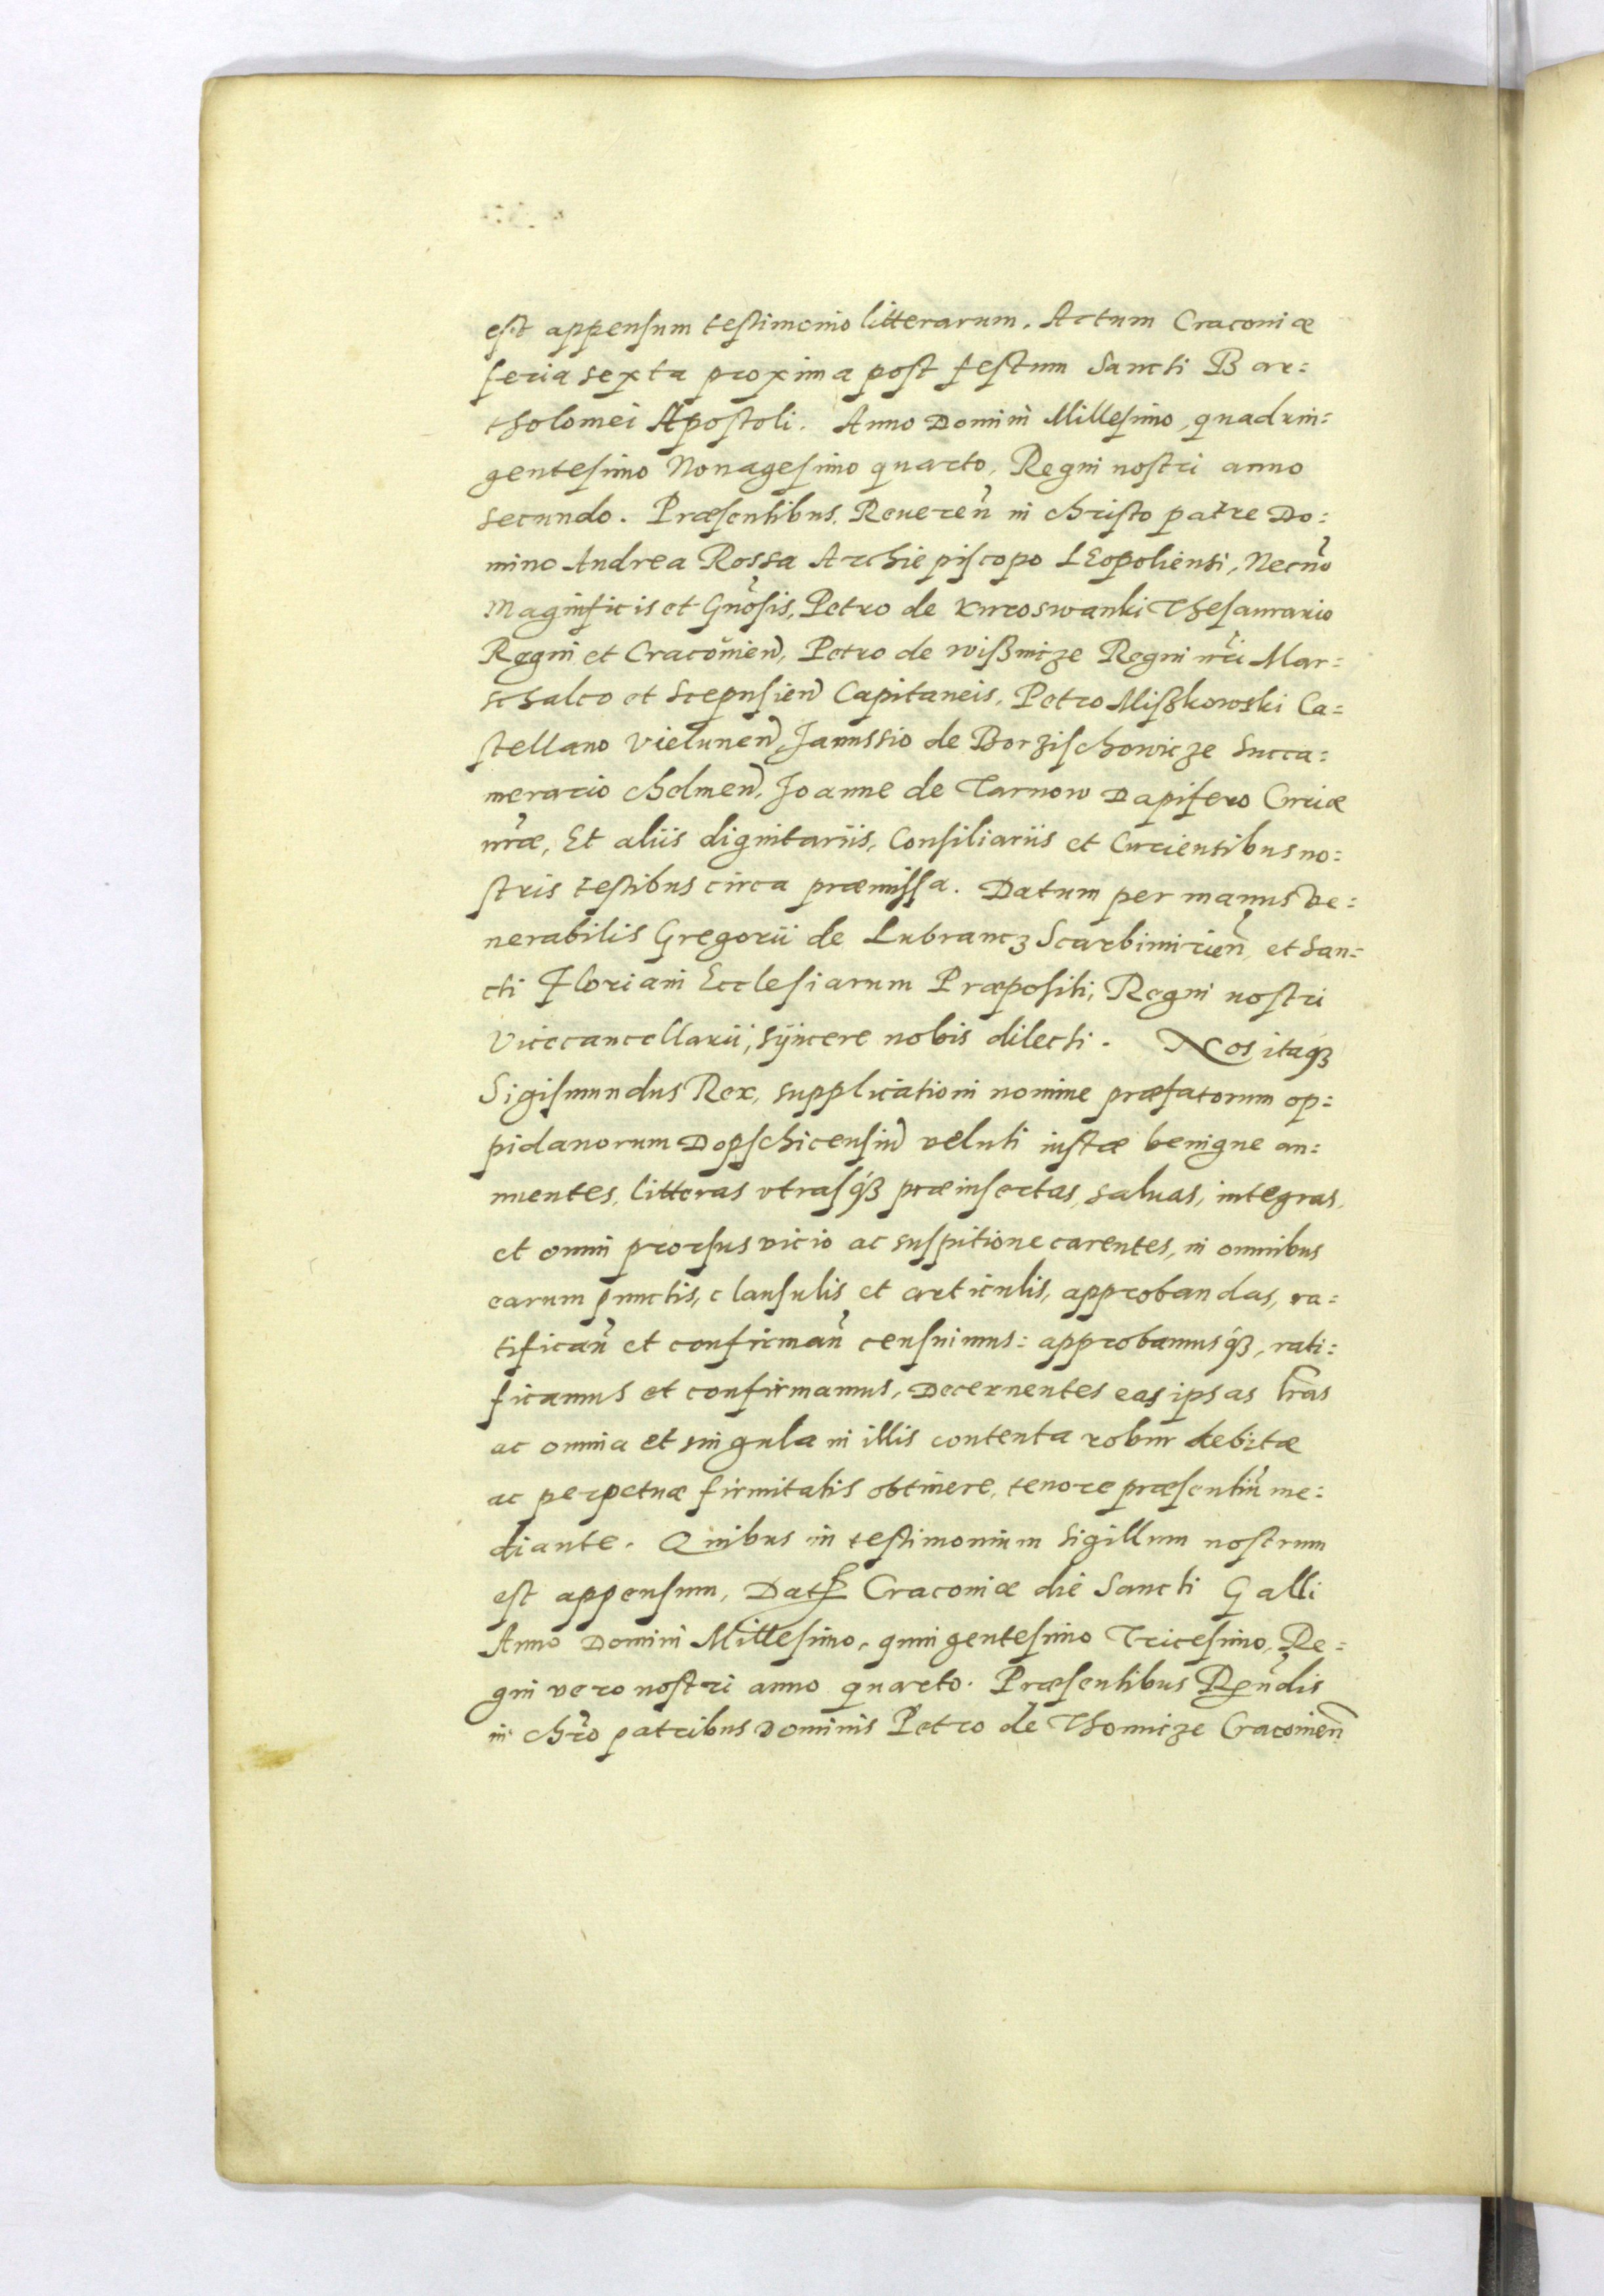 est appensum testimonio litterarum. Actum Cracoviæ
feria sexta proxima post festum Sancti Bar=
tholomei Apostoli. Anno Domini Millesimo, quadrin=
gentesimo Nonagesimo quarto, Regni nostri anno
secundo. Præsentibus, Reueren̄ in christo patre Do=
mino Andrea Rossa Archiepiscopo LEopoliensi, Necno͂
Magnificis et Gn͂osis, Petro de Kuroswanki Thesaurario
Regni et Cracovien̄, Petro de wißnicze Regni nr͂i Mar=
schalco et Scepusien̄ Capitaneis, Petro Mißkowski Ca=
stellano Vielunen̄, Janussio de Borzischowicze Succa=
merario chelmen̄, Joanne de Tarnow Dapifero Curiæ
nr͂æ, Et aliis dignitariis, Consiliariis et Curiensibus no=
stris testibus circa præmissa. Datum per manus Ve=
nerabilis Gregorii de Lubrancz Scarbimirien̄ et San=
cti Floriani Ecclesiarum Præpositi, Regni nostri
Vicecancellarii, syncere nobis dilecti. Nos itaqȝ
Sigismundus Rex, supplicationi nomine præfatorum op=
pidanorum Dopschicensiu͂ veluti iustæ benigne an=
nuentes, litteras vtrasqȝ præinsertas, saluas, integras,
et omni prorsus vicio ac suspitione carentes, in omnibus
earum punctis, clausulis et articulis, approbandas, ra=
tifican̄ et confirman̄ censuimus: approbamusqȝ, rati=
ficamus et confirmamus, Decernentes eas ipsas lr͂as
ac omnia et singula in illis contenta robur debitæ
ac perpetuæ firmitatis obtinere, tenore præsentiu͂ me=
diante. Quibus in testimonium Sigillum nostrum
est appensum, Dat Cracoviæ die Sancti Galli
Anno Domini Millesimo, quingentesimo Tricesimo, Re=
gni vero nostri anno quarto. Præsentibus Rn͂dis
in chr͂o patribus Dominis Petro de Thomicze Cracovien̄